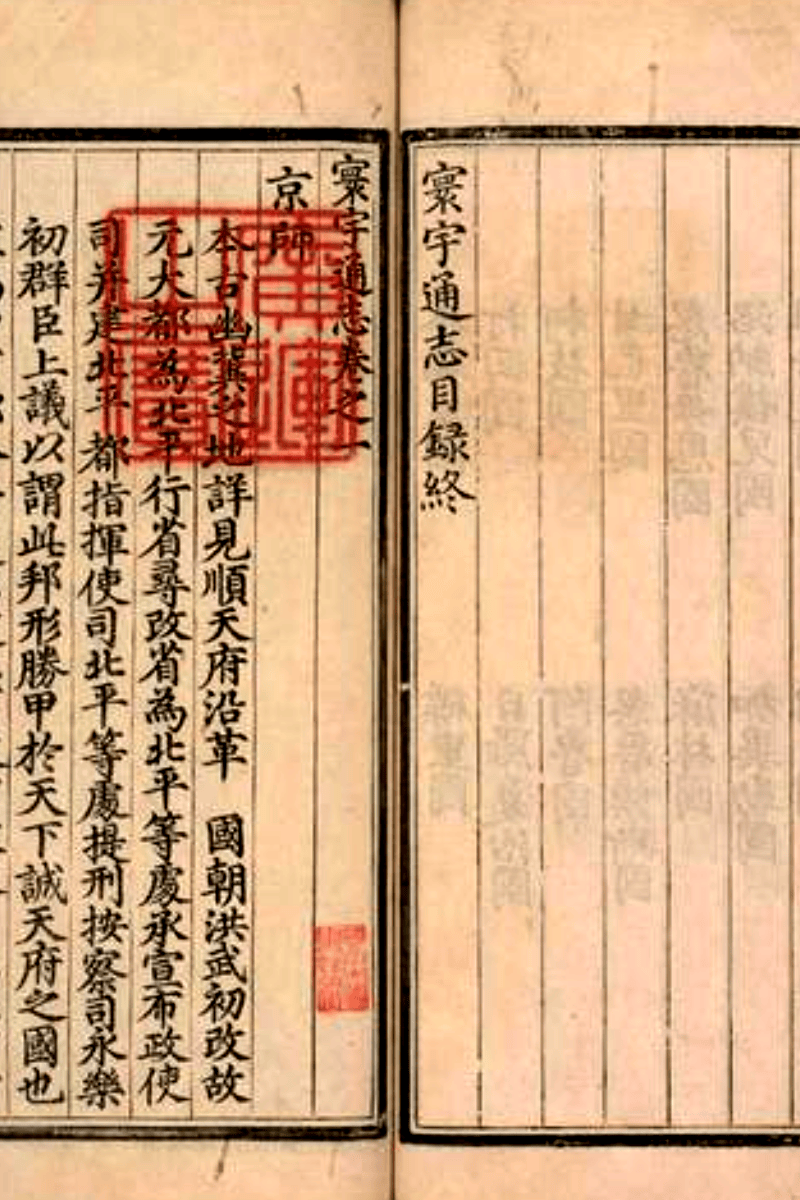 寰宇通志目録終
寰宇通志卷之一
京師
本古幽冀之地詳見順天府沿革　國朝洪武初改故
元大都為北平行省尋改省為北平等處承宣布政使
司并建北平　都指揮使司北平等處提刑按察司永樂
初群臣上議以謂此邦形勝甲於天下誠天府之國也